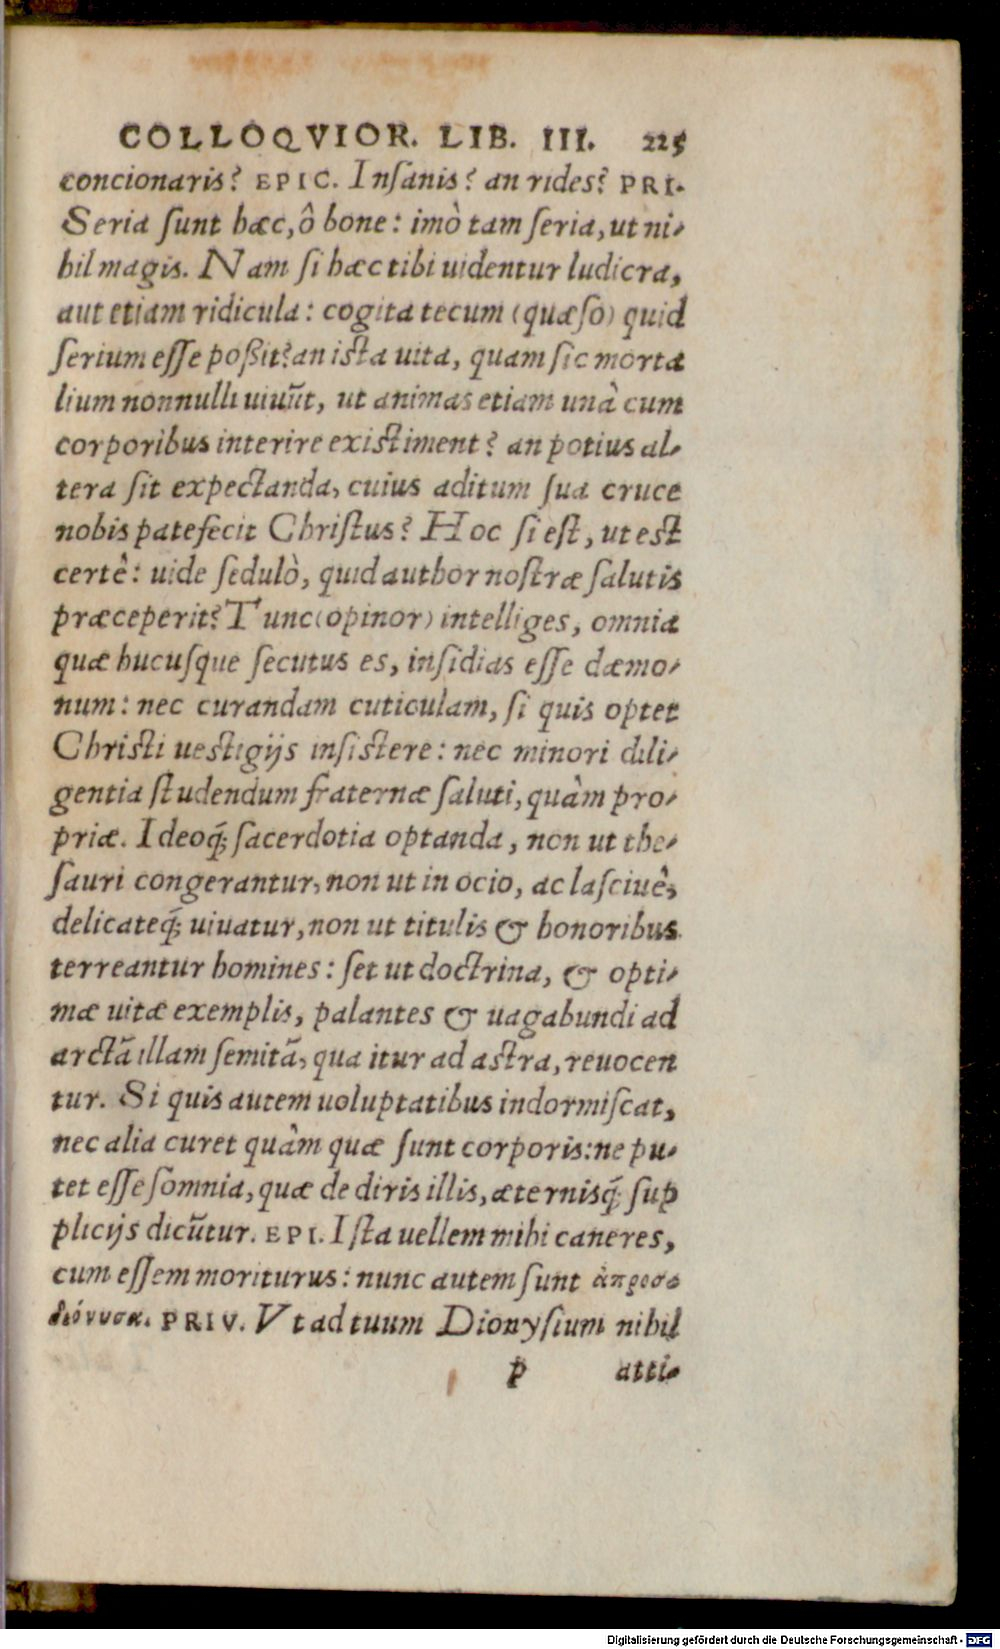 COLLOQVIOR. LIB. III. 225
concionaris? EPIC. Inſanis? an rides? PRI.
Seria ſunt hæc, ô bone: imò tam ſeria, ut ni-
hil magis. Nam ſi hæc tibi uidentur ludicra,
aut etiam ridicula: cogita tecum (quæſo) quid
ſerium eſſe poßit? an iſta uita, quam ſic morta
lium nonnulli uiuūt, ut animas etiam unà cum
corporibus interire exiſtiment? an potius al-
tera ſit expectanda, cuius aditum ſua cruce
nobis patefecit Chriſtus? Hoc ſi eſt, ut est
certê: uide ſedulò, quid author noſtræ ſalutis
præceperit? Tunc (opinor) intelliges, omnia
quæ hucuſque ſecutus es, inſidias eſſe dæmo-
num: nec curandam cuticulam, ſi quis optet
Chriſti uestigijs inſiſtere: nec minori dili-
gentia ſtudendum fraternæ ſaluti, quàm pro-
priæ. Ideoq́; ſacerdotia optanda, non ut the-
ſauri congerantur, non ut in ocio, ac laſciuê,
delicateq́; uiuatur, non ut titulis & honoribus
terreantur homines: ſet ut doctrina, & opti-
mæ uitæ exemplis, palantes & uagabundi ad
arctā illam ſemitā, qua itur ad aſtra, reuocen
tur. Si quis autem uoluptatibus indormiſcat,
nec alia curet quàm quæ ſunt corporis: ne pu-
tet eſſe ſomnia, quæ de diris illis, æternisq́; ſup
plicijs dicūtur. EPI. Iſta uellem mihi caneres,
cum eſſem moriturus: nunc autem ſunt ἀπροσ-
διόνυσα. PRIV. Vt ad tuum Dionyſium nihil
p atti-
Digitalisierung gefördert durch die Deutsche Forschungsgemeinschaft - DFG